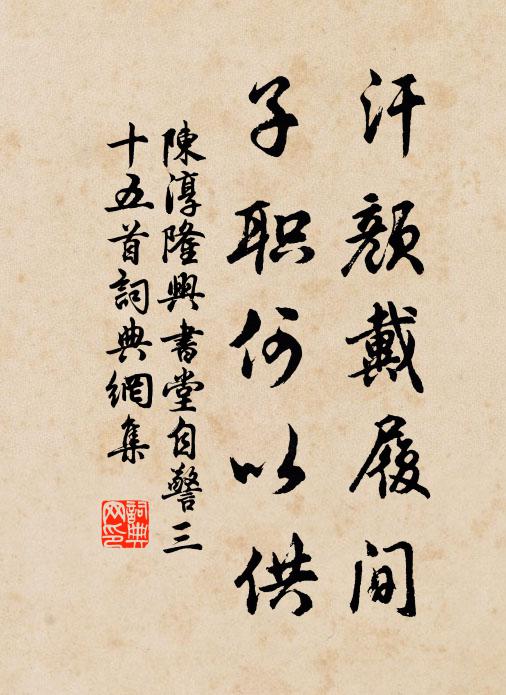 汗颜戴履间
子职何以供
陳淳隆興書堂自警三
十五首詞典網集
詞典
网印